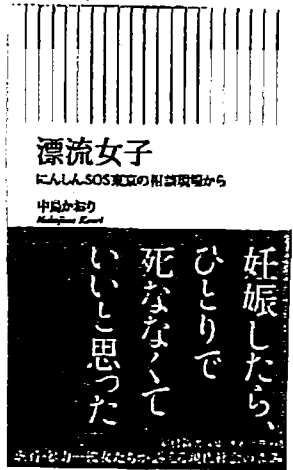 漂流女子
にんしんSOS東京の相談現場から
中島かおり
Nakajima Kaori
妊娠したら、
ひとりで
死ななくて
いいと思った